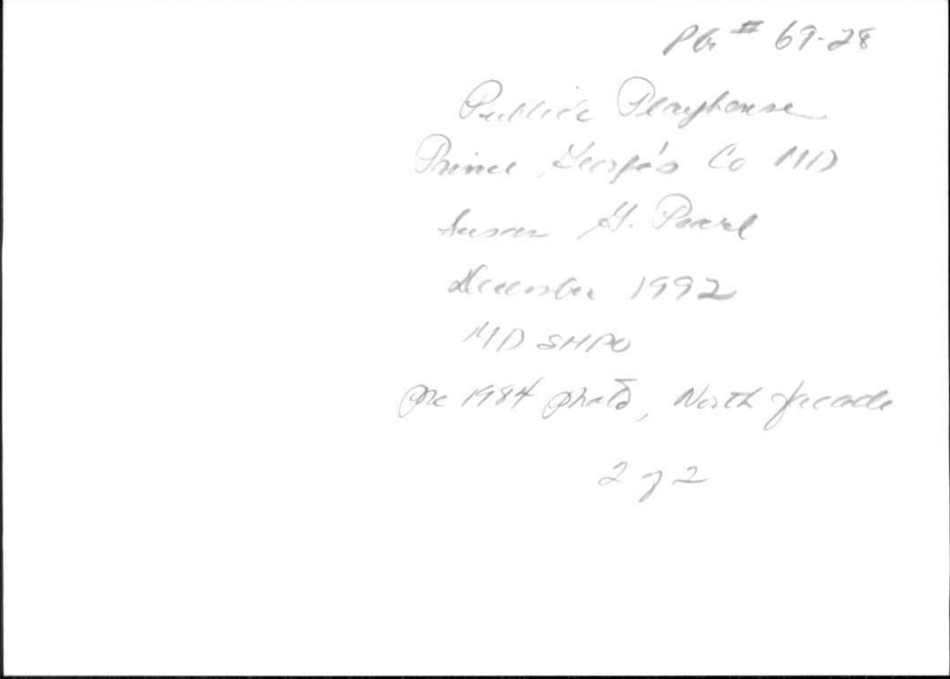 PG # 69-28
Publick Playhouse
Prince George's Co MD
Susan G. Pearl
December 1992
MD SHPO
pre 1984 photo, North facade
2 of 2